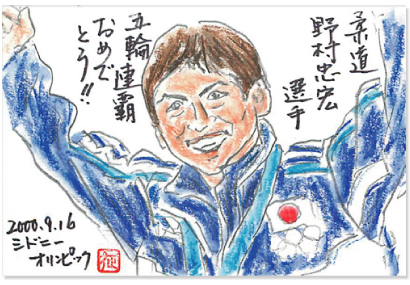 柔道
野村忠宏
選手
五輪連覇
おめで
とう!!
2000.9.16
シドニー
オリンピック